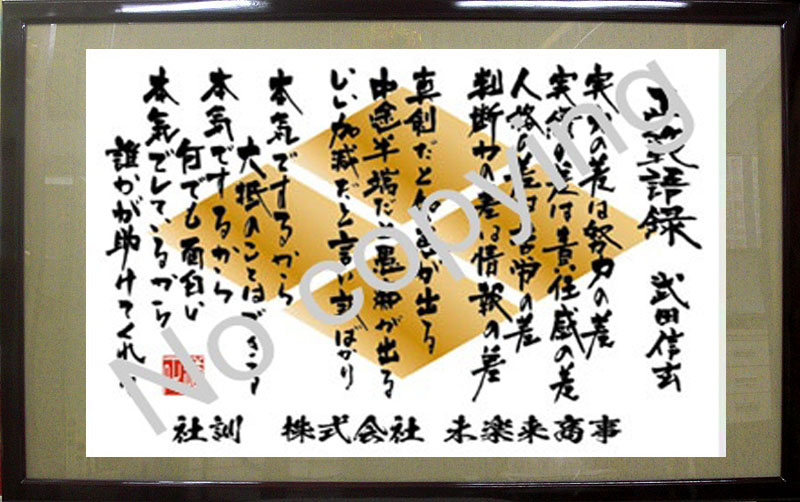 正範語録 武田信玄
実力の差は努力の差
実績の差は責任感の差
人格の差は苦労の差
判断力の差は情報の差
真剣だと知恵が出る
中途半端だと愚痴が出る
いい加減だと言い訳ばかり
本気でするから
大抵のことはできる
本気でするから
何でも面白い
本気でしているから
誰かが助けてくれる
社訓 株式会社 未楽来商事
No copying